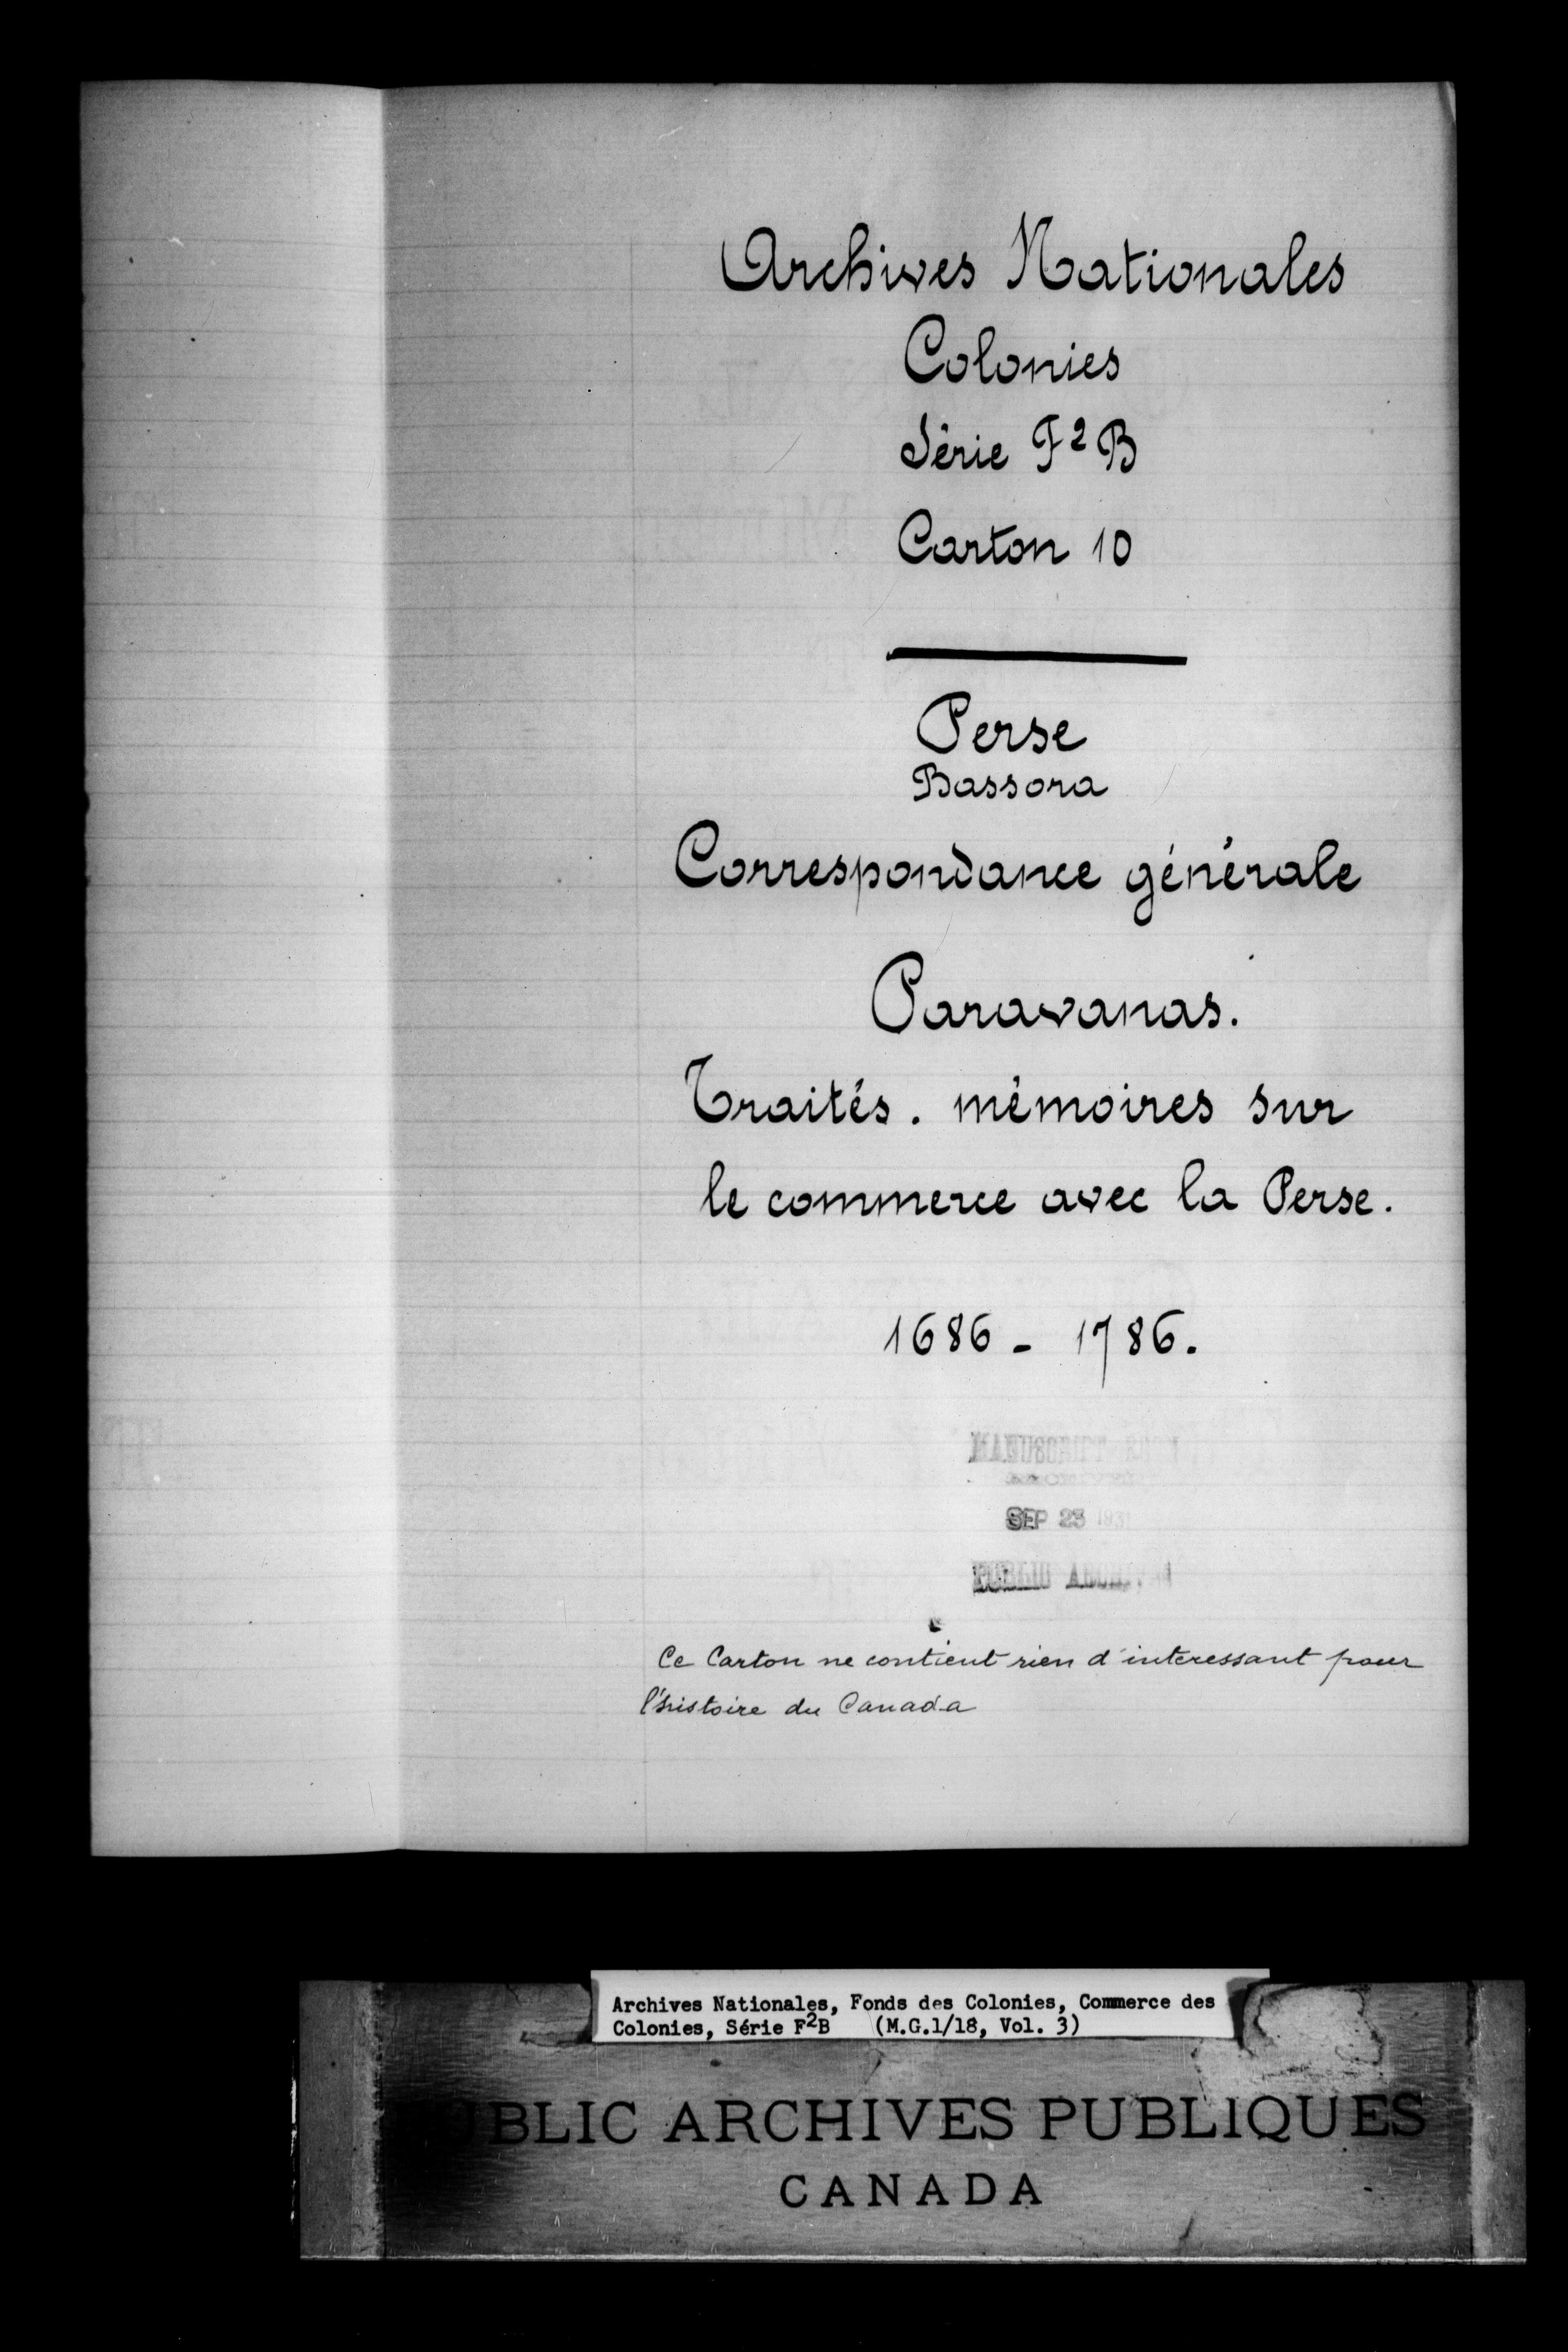 Archives Nationales
Colonies
Série F²B
Carton 10
Perse
Bassora
Correspondance générale
Paravanas.
Traités. mémoires sur
le commerce avec la Perse.
1686 - 1786.
SEP 23 193
PUBLIC ARCHIVES
Ce Carton ne contient rien d'interessant pour
l'histoire du Canada
Archives Nationales, Fonds des Colonies, Commerce des
Colonies, Série F²B (M.G.1/18, Vol. 3)
PUBLIC ARCHIVES PUBLIQUES
CANADA